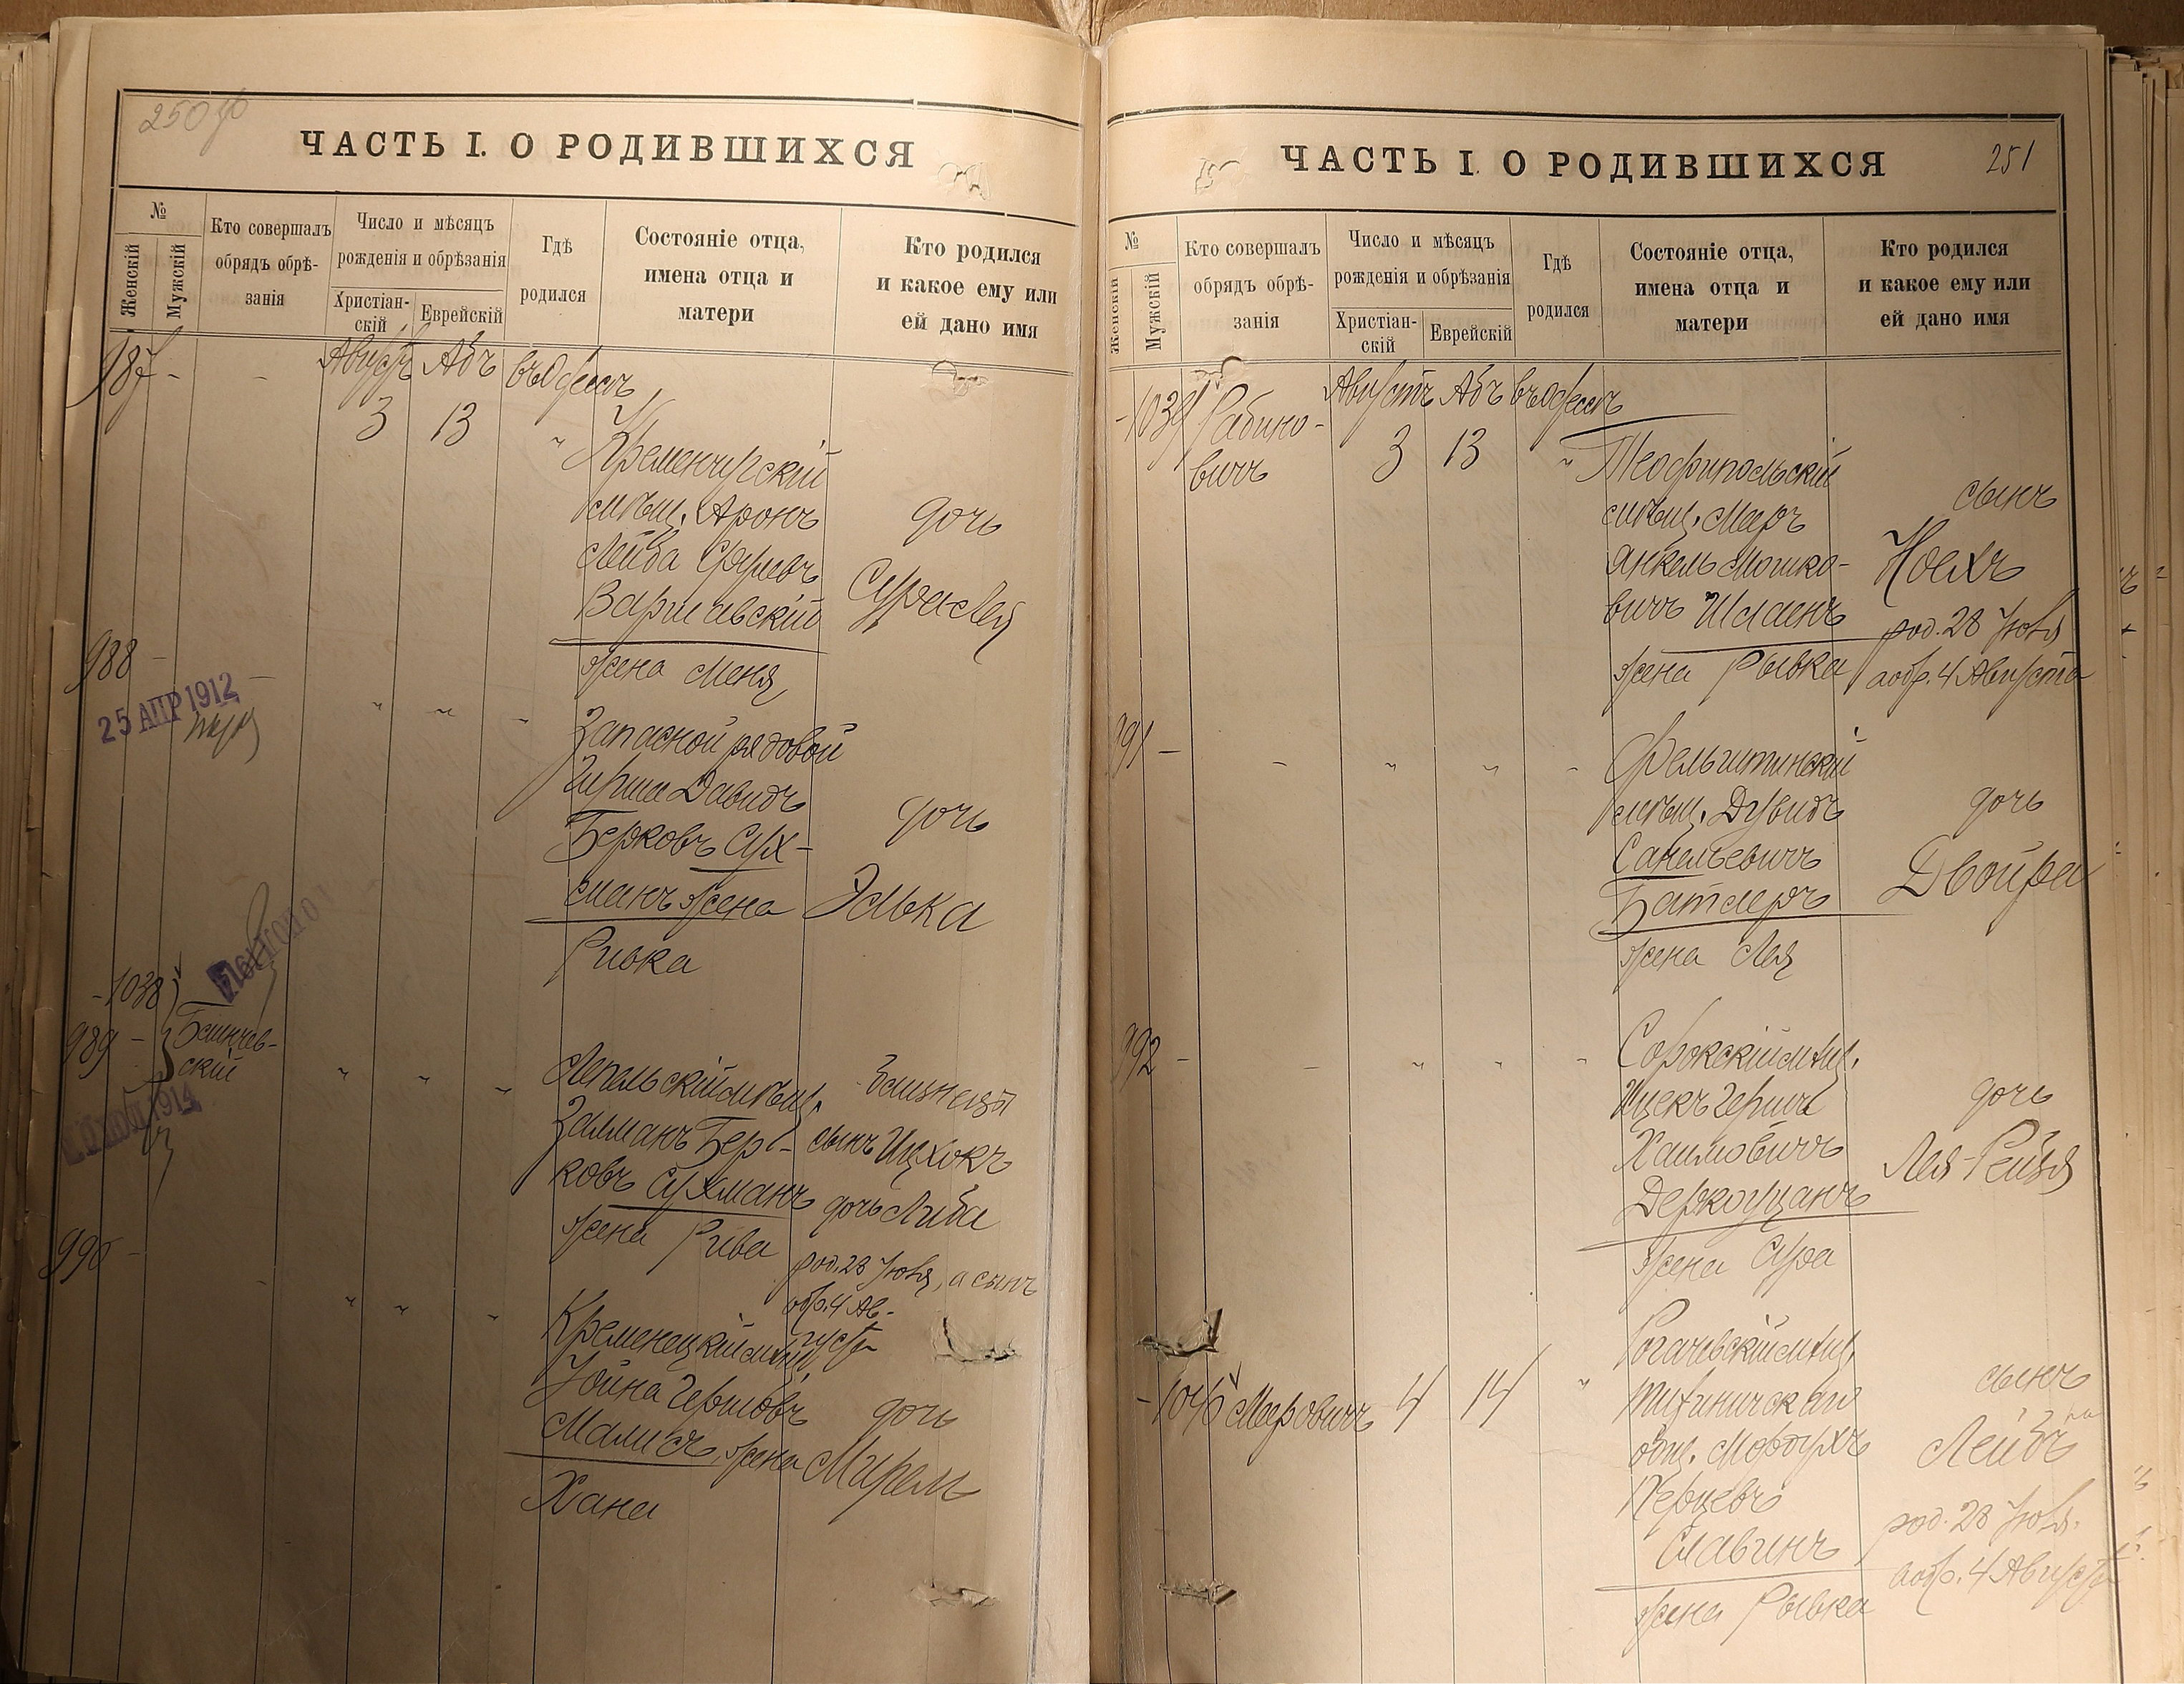 250 об
ЧАСТЬ I. О РОДИВШИХСЯ
№
Женскій
Мужскій
Кто совершалъ
обрядъ обрѣ-
занія
Число и мѣсяцъ
рожденія и обрѣзанія
Христіан-
скій
Еврейскій
Гдѣ
родился
Состояніе отца,
имена отца и
матери
Кто родился
и какое ему или
ей дано имя
987 - - Августъ Абъ въ Одессѣ
3 13 "
Кременчугскій
мѣщ. Аронъ
Лейба Сруль
Варшавскій
жена Меня
дочь
Сура-Лея
988 - -
25 АПР 1912
Запасной рядовой
Гирша Давидъ
Берковъ Сух-
манъ жена
Ривка
дочь
Элька
Повторно
-1038
989 -
Блинчев-
скій
1914
Лепельскій мѣщ.
Залманъ Бер-
ковъ Сухманъ
жена Рива
Близнецы
сынъ Ицхокъ
дочь Либа
род. 28 Іюля, а сынъ
обр. 4 Ав-
густа
990 -
Кременецкій мѣщ.
Іойна Гершовъ
Малисъ, жена
Хана
дочь
Мирель
251
ЧАСТЬ I. О РОДИВШИХСЯ
№
Женскій
Мужскій
Кто совершалъ
обрядъ обрѣ-
занія
Число и мѣсяцъ
рожденія и обрѣзанія
Христіан-
скій
Еврейскій
Гдѣ
родился
Состояніе отца,
имена отца и
матери
Кто родился
и какое ему или
ей дано имя
-1039 Рабино-
вичъ
Августъ Абъ въ Одессѣ
3 13 "
Теофипольскій
мѣщ. Меръ
Янкель Мошко-
вичъ
жена Рывка
сынъ
Ноехъ
род. 28 Іюля
а обр. 4 Августа
991 - - " " -
Фельштинскій
мѣщ. Дувидъ
Санелевичъ
Батлеръ
жена Лея
дочь
Двойра
992 - - " " -
Сорокскій мѣщ.
Ицекъ Гершъ
Хаимовичъ
Деркоуцанъ
жена Сура
дочь
Лея-Рейзя
-1040 Меровичъ 4 14 "
Рогачевскій мѣщ.
Тихиничскаго
общ. Мордухъ
Перцевъ
Славинъ
жена Рывка
сынъ
Лейбъ
род. 28 Іюля.
а обр. 4 Августа